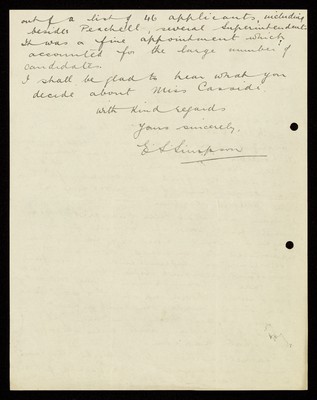 out of a list of 46 applicants, including
besides Peschell, several Superintendents
It was a fine appointment which
accounted for the large number of
candidates.
I shall be glad to hear what you
decide about Miss Cassidi.
With kind regards
Yours sincerely,
E S Simpson